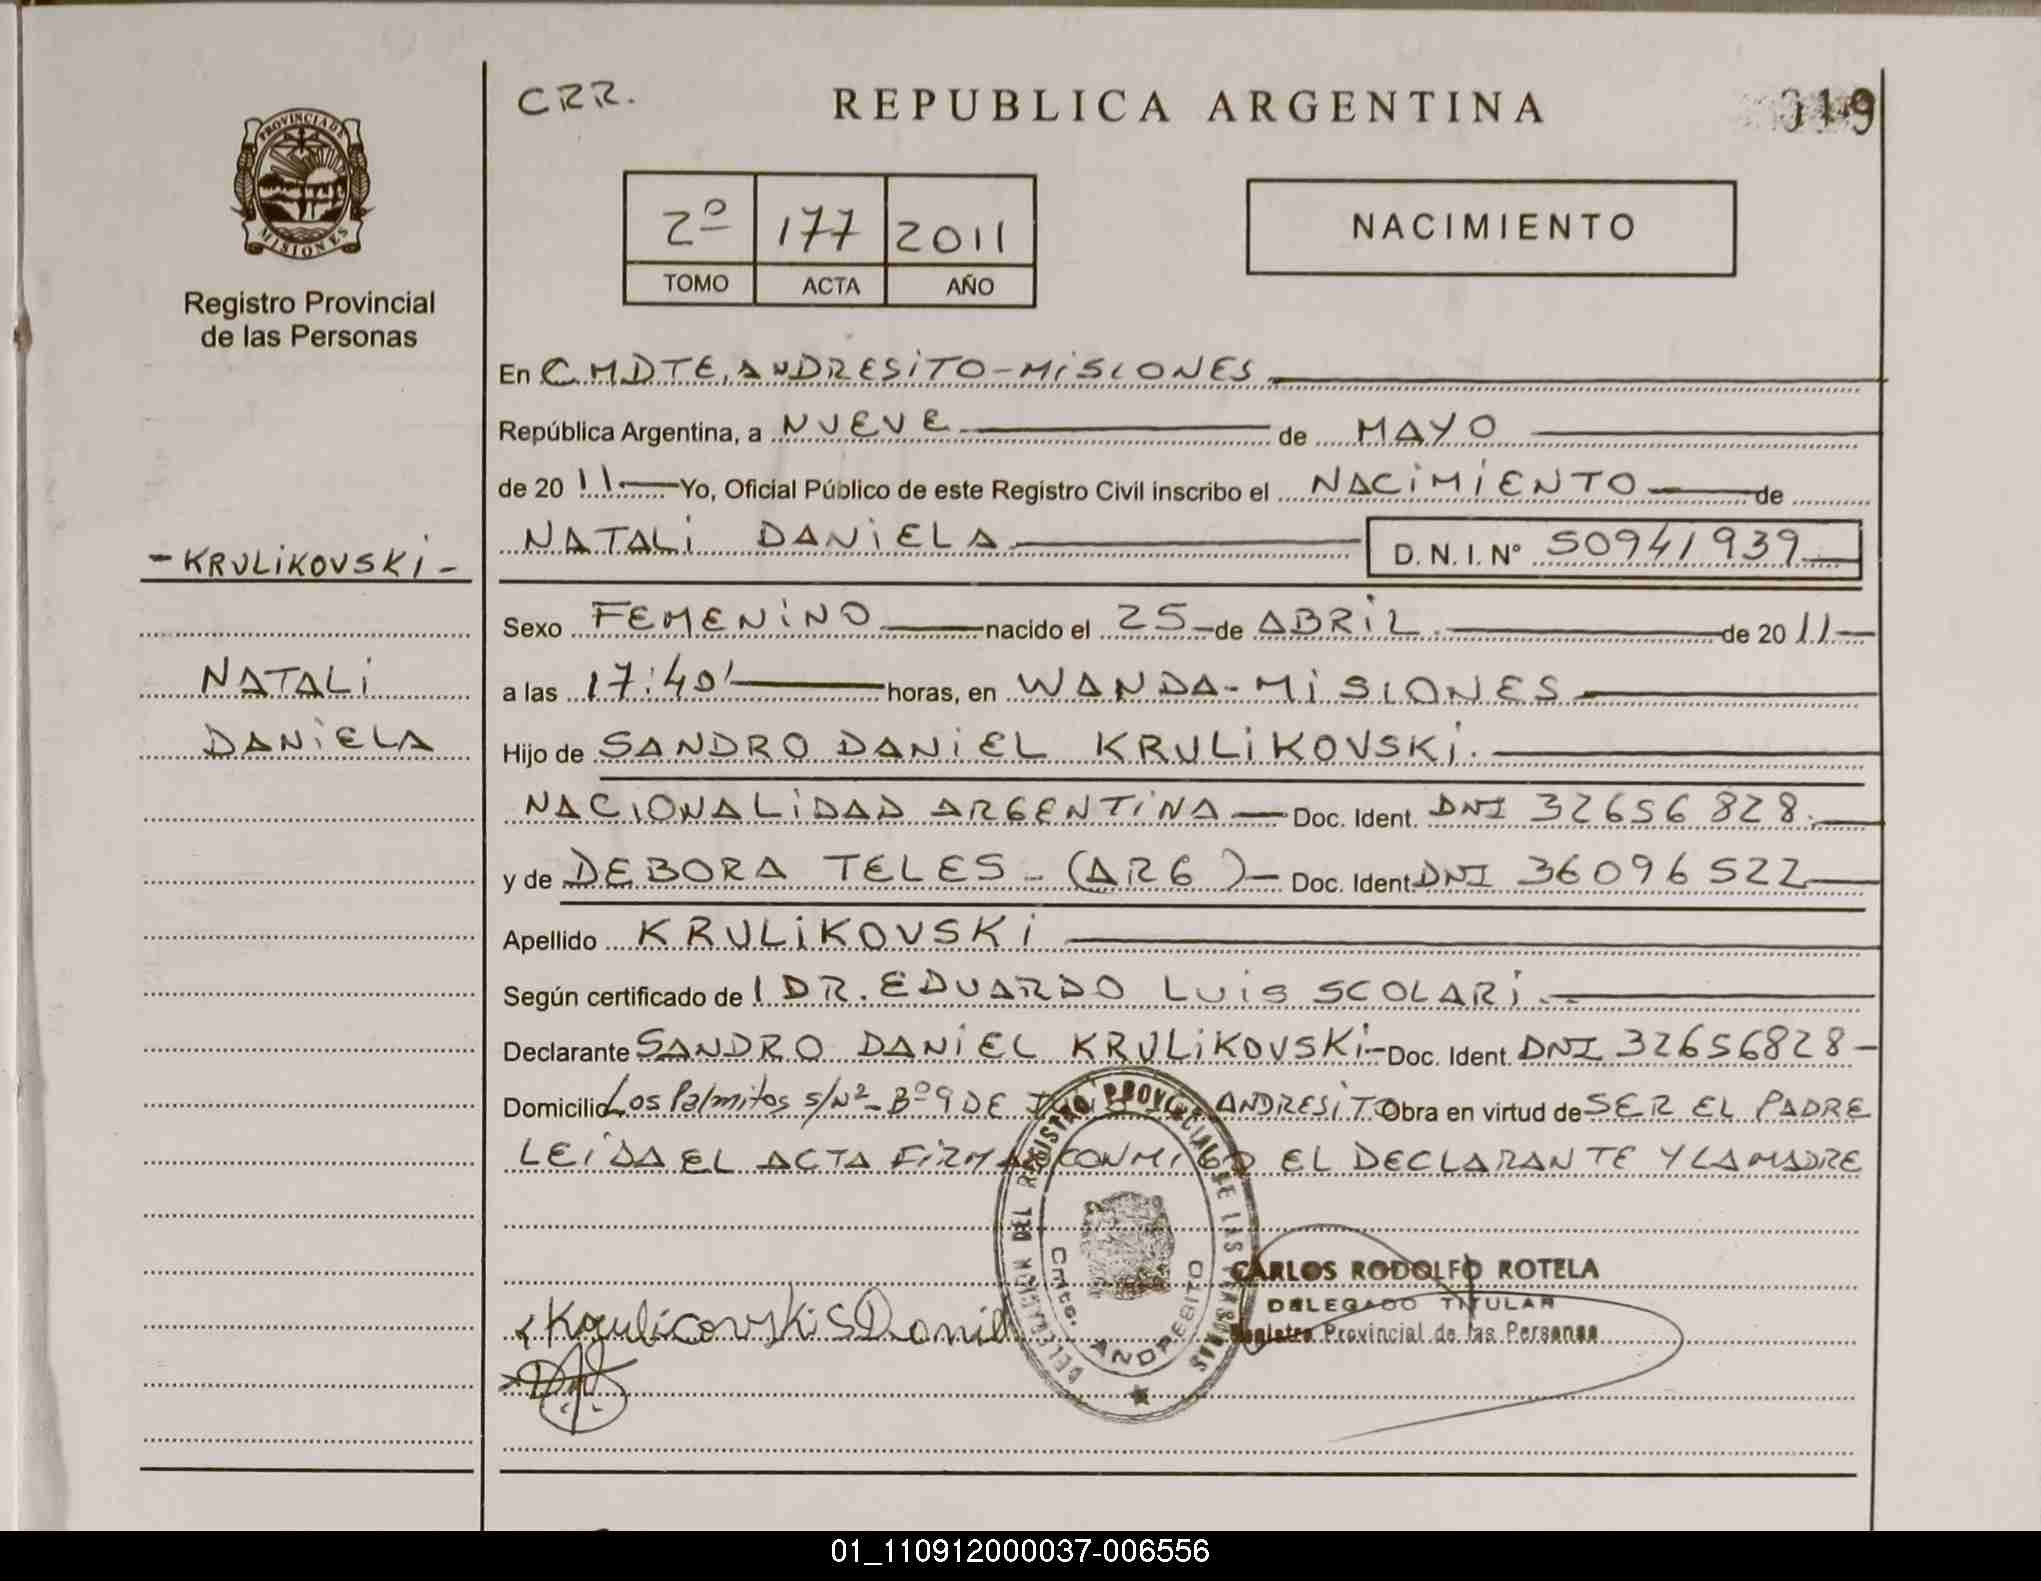 CRR.
REPUBLICA ARGENTINA
019
PROVINCIA DE
MISIONES
Registro Provincial
de las Personas
2º 177 2011
TOMO ACTA AÑO
NACIMIENTO
En CMDTE. ANDRESITO - MISIONES
República Argentina, a NUEVE de MAYO
de 20 11 Yo, Oficial Público de este Registro Civil inscribo el NACIMIENTO de
NATALI DANIELA D. N. I. N° 50941939
- KRULIKOVSKI -
NATALI
DANIELA
Sexo FEMENINO nacido el 25 de ABRIL de 20 11
a las 17:40' horas, en WANDA - MISIONES
Hijo de SANDRO DANIEL KRULIKOVSKI.
NACIONALIDAD ARGENTINA Doc. Ident. DNI 32656828.
y de DEBORA TELES - (ARG) - Doc. Ident DNI 36096522
Apellido KRULIKOVSKI
Según certificado de l DR. EDUARDO LUIS SCOLARI
Declarante SANDRO DANIEL KRULIKOVSKI - Doc. Ident. DNI 32656828 -
Domicilio Los Palmitos s/Nº - Bº 9 DE ANDRESITO Obra en virtud de SER EL PADRE
LEIDA EL ACTA FIRMA CONMIGO EL DECLARANTE Y LA MADRE
DELEGACION DEL REGISTRO PROVINCIAL DE LAS PERSONAS
Cmte. ANDRESITO
CARLOS RODOLFO ROTELA
DELEGADO TITULAR
Registro Provincial de las Personas
Krulicovski S Daniel
01_110912000037-006556